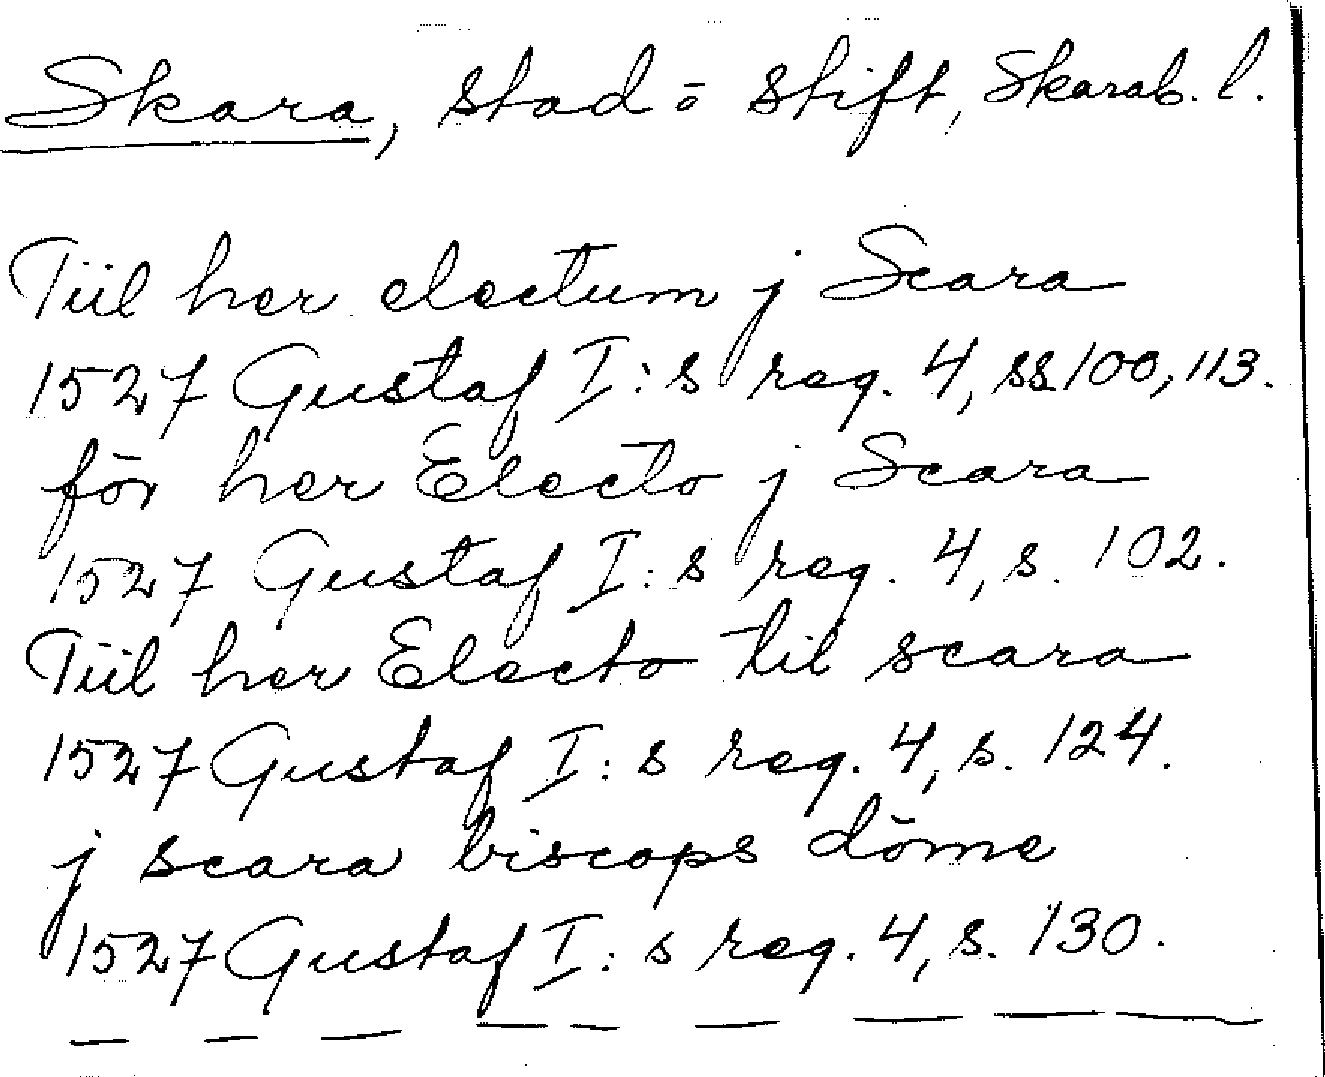 Skara, stad o stift, Skarab. l.
Tiil her electum j Scara
1527 Gustaf I:s reg. 4, ss 100, 113.
för her Electo j Scara
1527 Gustaf I:s reg. 4, s. 102.
Tiil her Electo til scara
1527 Gustaf I:s reg. 4, s. 124.
j scara biscops döme
1527 Gustaf I:s reg. 4, s. 130.